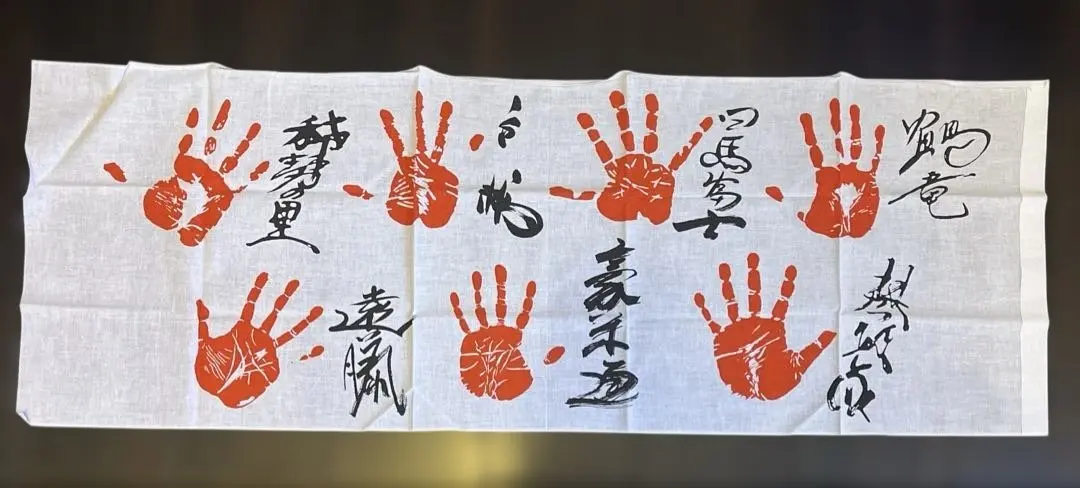 鶴竜
日馬富士
白鵬
稀勢の里
豪栄道
遠藤